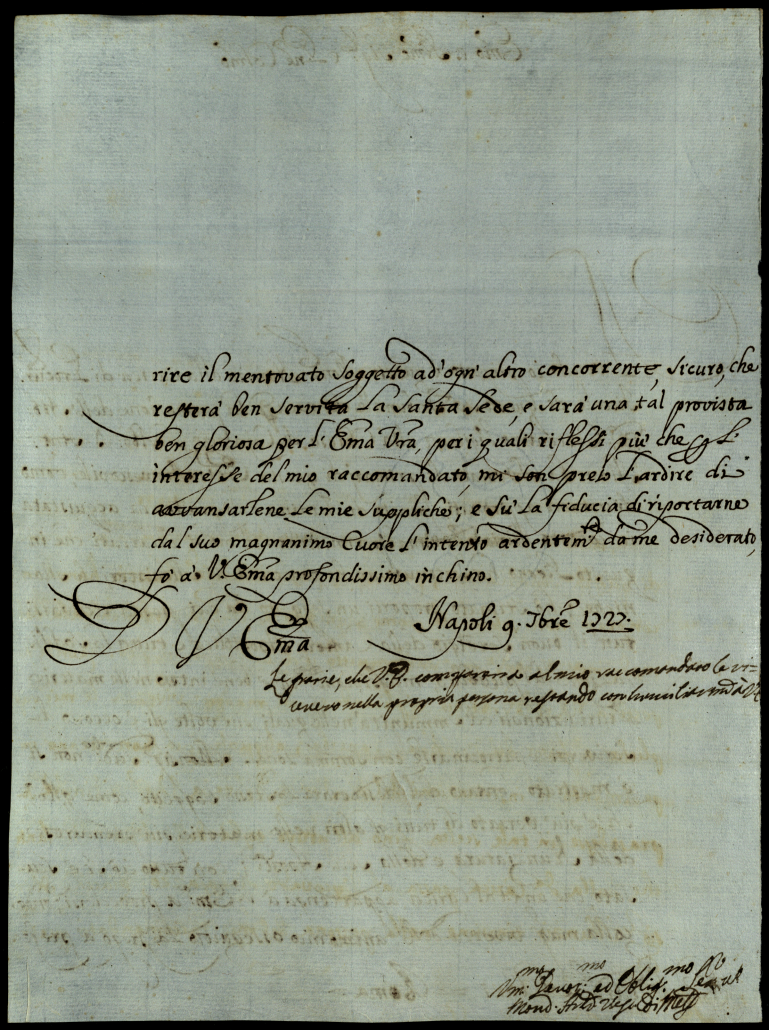 rire il mentovato soggetto ad'ogn'altro concorrente, sicuro, che
resterà ben servita la Santa Sede, e sarà una tal provista
ben gloriosa per l'Ema Vra, per i quali riflessi più che p l'
interesse del mio raccomandato, mi son preso l'ardire di
avvansarlene le mie suppliche; e sù la fiducia di riportarne
dal suo magnanimo Cuore l'intento ardentemte da me desiderato,
fò à V. Ema profondissimo inchino.
D V Ema Napoli 9. 7bre 1727.
Le grazie, che V. E. compartirà al mio raccomandato le ri=
ceverò nella propria persona restando con
Umo ed Obligmo